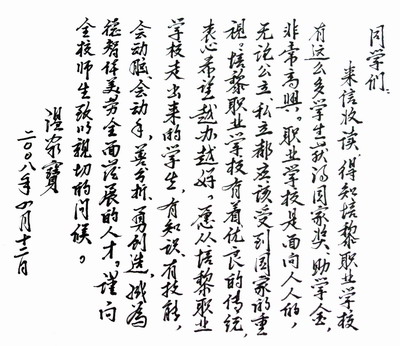 同学们:
来信收读,得知培黎职业学校
有这么多学生获得国家奖、助学金,
非常高興。职业学校是面向人人的,
无论公立、私立都应该受到国家的重
视。培黎职业学校有着优良的传统,
衷心希望越办越好。愿从培黎职业
学校走出来的学生,有知识、有技能,
会动脑、会动手,善分析、勇创造,成为
德智体美劳全面发展的人才。谨向
全校师生致以親切的问候。
温家寶
二〇〇八年四月十二日